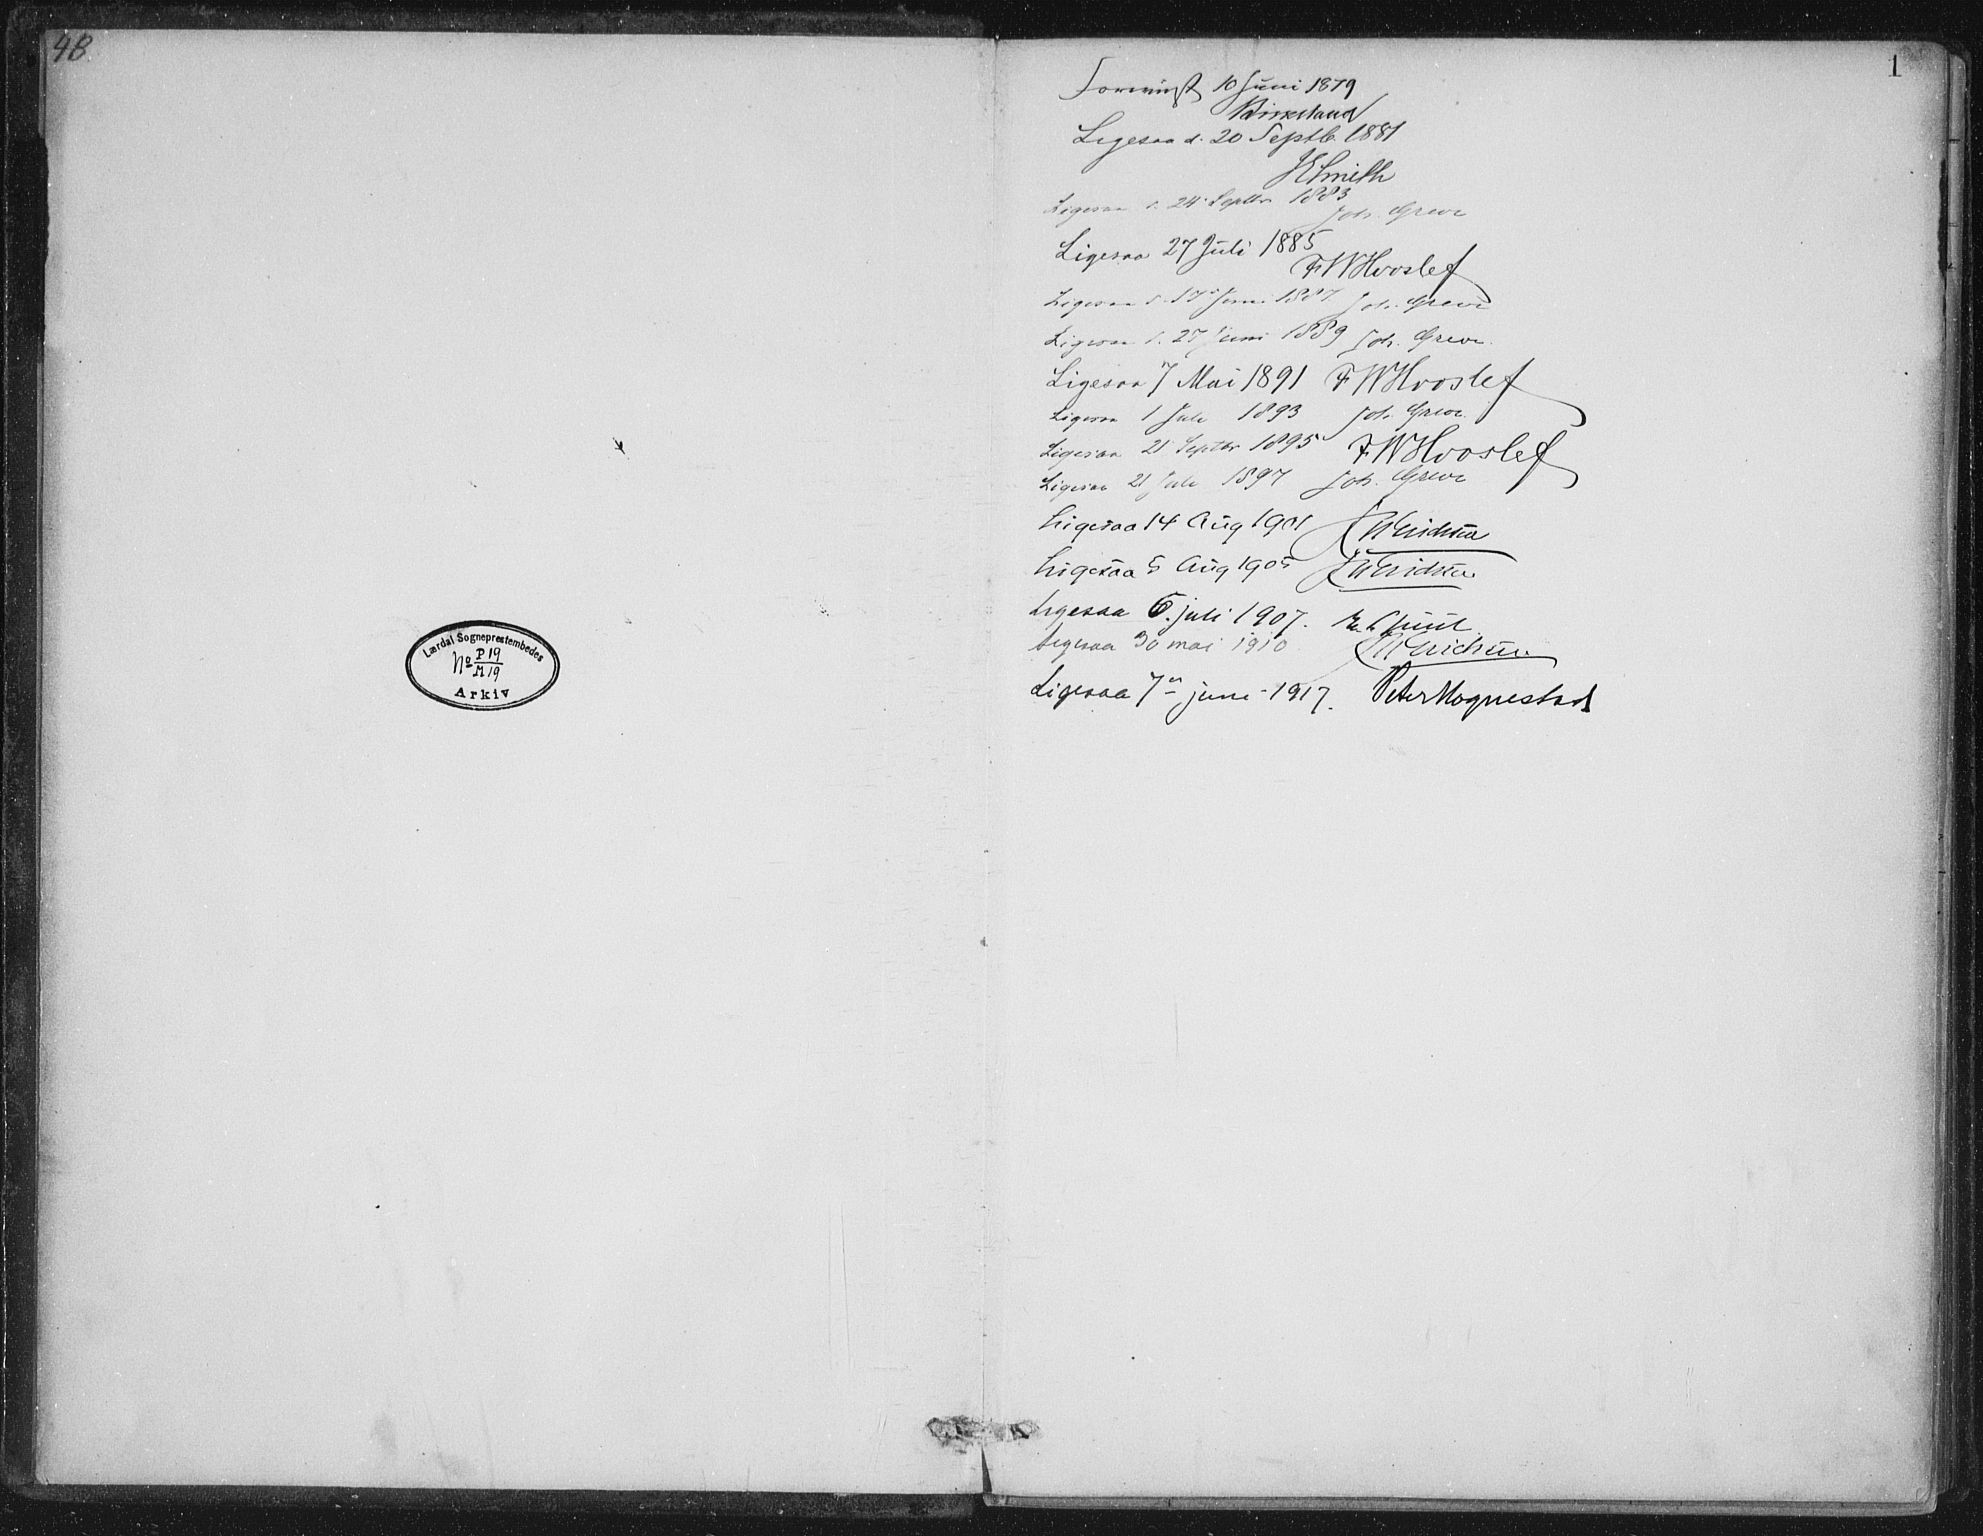 4B.
Lærdal Sogneprestembedes
No P 19
M 19
Arkiv
1
Forevist 10 Juni 1879
Birkeland
Ligesaa d. 20 Septb. 1881
JESmith
Ligesaa d. 24 Septbr 1883
Joh. Greve
Ligesaa 27 Juli 1885
FWHvoslef
Ligesaa d. 17 Juni 1887 Joh. Greve
Ligesaa d. 27 Juni 1889 Joh. Greve.
Ligesaa 7 Mai 1891 FWHvoslef
Ligesaa 1 Juli 1893 Joh. Greve.
Ligesaa 21 Septbr 1895 FWHvoslef
Ligesaa 21 Juli 1897 Joh. Greve
Ligesaa 14 Aug 1901 Erichsen
Ligesaa 5 Aug 1905 Erichsen
Ligesaa 6. juli 1907. Juul
Ligesaa 30 mai 1910 Erichsen
Ligesaa 7de juni 1917. Peter Hognestad